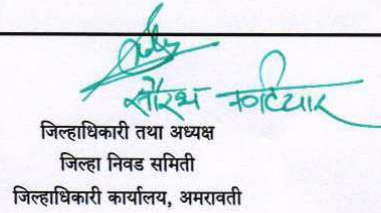 सौरभ कटियार
जिल्हाधिकारी तथा अध्यक्ष
जिल्हा निवड समिती
जिल्हाधिकारी कार्यालय, अमरावती